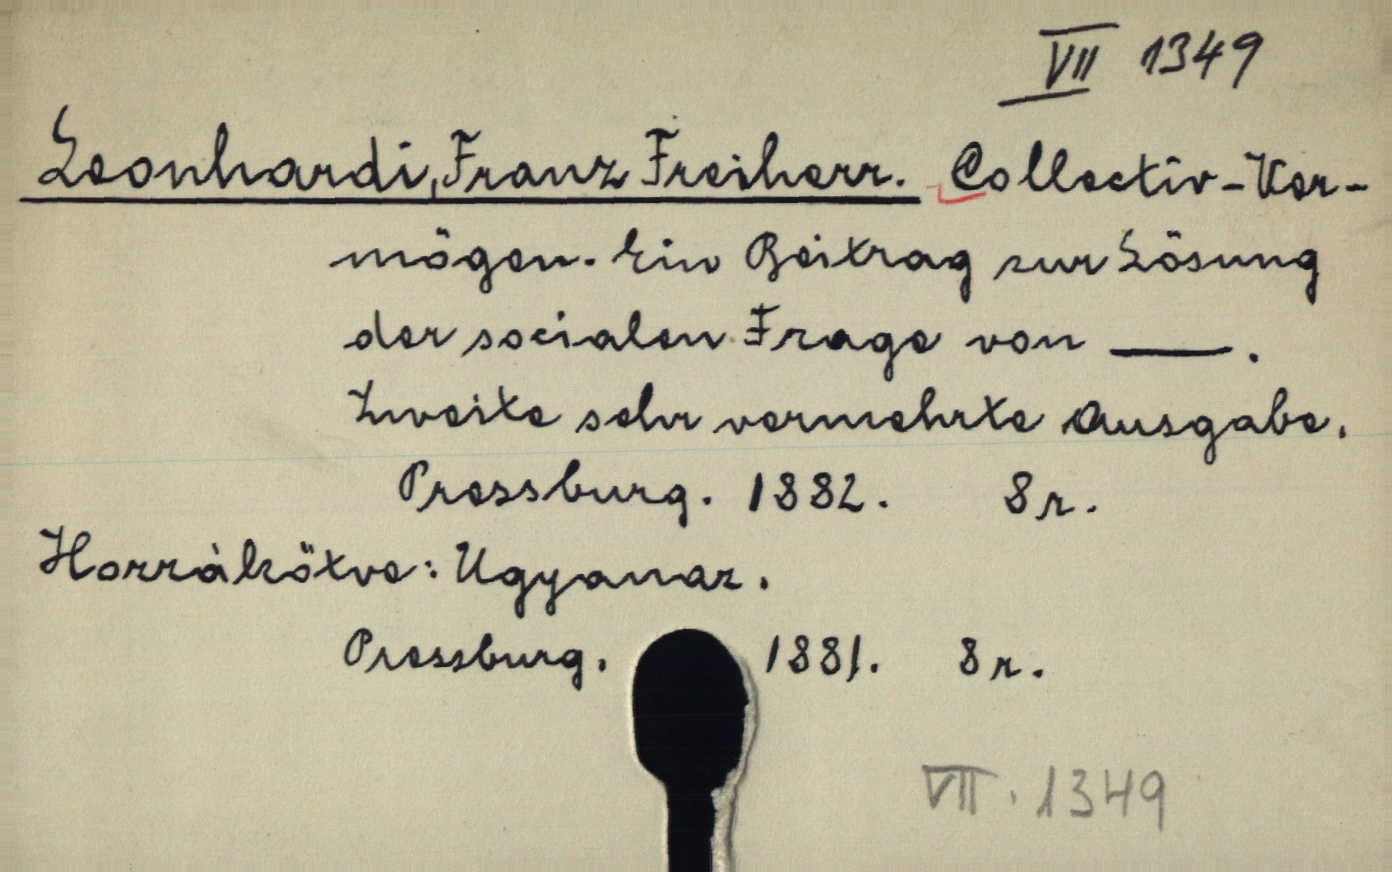 VII 1349
Leonhardi, Franz Freiherr. Collectiv-Ver-
mögen. Ein Beitrag zur Lösung
der socialen Frage von ——.
Zweite sehr vermehrte Ausgabe.
Pressburg. 1882. 8r.
Hozzákötve: Ugyanaz.
Pressburg. 1881. 8r.
VII. 1349